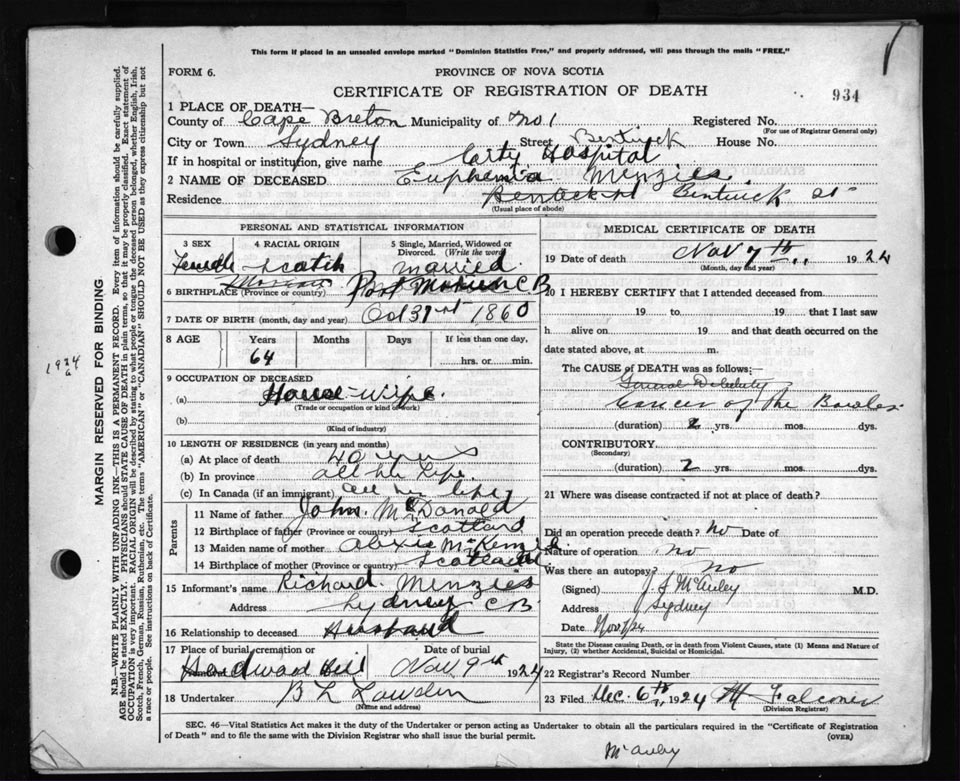 This form if placed in an unsealed envelope marked "Dominion Statistics Free," and properly addressed, will pass through the mails "FREE."
FORM 6.
PROVINCE OF NOVA SCOTIA
CERTIFICATE OF REGISTRATION OF DEATH
934
1 PLACE OF DEATH—
County of Cape Breton Municipality of No 1 Registered No.
(For use of Registrar General only)
City or Town Sydney Street House No.
If in hospital or institution, give name City Hospital
2 NAME OF DECEASED Euphemia Menzies
Residence Bentinck St
(Usual place of abode)
PERSONAL AND STATISTICAL INFORMATION
3 SEX 4 RACIAL ORIGIN 5 Single, Married, Widowed or Divorced. (Write the word)
Female Scotch married
6 BIRTHPLACE (Province or country) Port Morien C.B
7 DATE OF BIRTH (month, day and year) Oct 31st 1860
8 AGE Years Months Days If less than one day,
64 hrs. or min.
9 OCCUPATION OF DECEASED
(a) House-wife
(Trade or occupation or kind of work)
(b)
(Kind of industry)
10 LENGTH OF RESIDENCE (in years and months)
(a) At place of death 40 years
(b) In province all her life
(c) In Canada (if an immigrant) all her life
Parents
11 Name of father John McDonald
12 Birthplace of father Scotland
13 Maiden name of mother McKenzie
14 Birthplace of mother (Province or country) Scotland
15 Informant's name Richard Menzies
Address Sydney C B
16 Relationship to deceased Husband
17 Place of burial, cremation or removal Date of burial
Nov 9th 1924
18 Undertaker B L
(Name and address)
MEDICAL CERTIFICATE OF DEATH
19 Date of death Nov 7th 1924
(Month, day and year)
20 I HEREBY CERTIFY that I attended deceased from
19 to 19 that I last saw
h alive on 19 and that death occurred on the
date stated above, at m.
The CAUSE OF DEATH was as follows:
Debility
Cancer of the Bowles
(duration) 2 yrs. mos. dys.
CONTRIBUTORY.
(Secondary)
(duration) 2 yrs. mos. dys.
21 Where was disease contracted if not at place of death?
Did an operation precede death? no Date of
Nature of operation no
Was there an autopsy? no
(Signed) J J McAuley M.D.
Address Sydney
Date Nov 7/24
State the Disease causing Death, or in death from Violent Causes, state (1) Means and Nature of Injury, (2) whether Accidental, Suicidal or Homicidal.
22 Registrar's Record Number
23 Filed Dec. 6th 1924 Falconer
(Division Registrar)
SEC. 46—Vital Statistics Act makes it the duty of the Undertaker or person acting as Undertaker to obtain all the particulars required in the "Certificate of Registration of Death" and to file the same with the Division Registrar who shall issue the burial permit.
(OVER)
McAuley
MARGIN RESERVED FOR BINDING
N.B.—WRITE PLAINLY WITH UNFADING INK—THIS IS A PERMANENT RECORD. Every item of information should be carefully supplied.
AGE should be stated EXACTLY. PHYSICIANS should STATE CAUSE OF DEATH in plain terms, so that it may be properly classified. Exact statement of
OCCUPATION is very important. RACIAL ORIGIN will be described by stating to what people or tongue the deceased person belonged, whether English, Irish,
Scotch, French, German, Russian, Ruthenian, etc. The terms "AMERICAN" or "CANADIAN" SHOULD NOT BE USED as they express citizenship but not
a race or people. See instructions on back of Certificate.